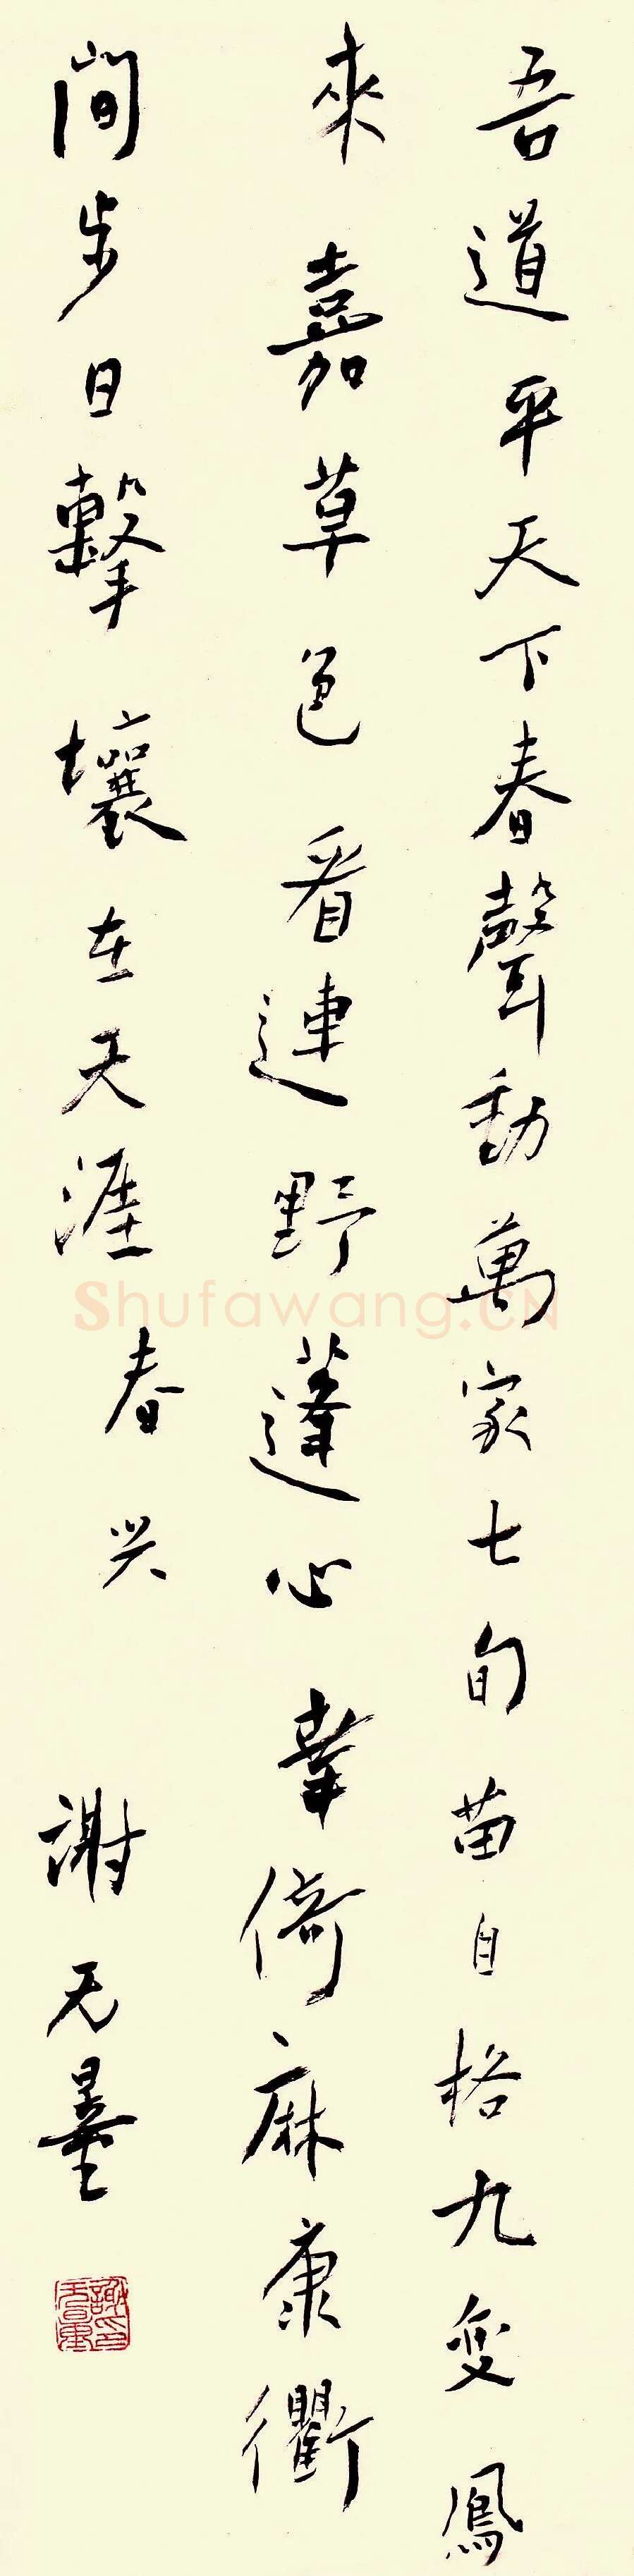 吾道平天下春聲動萬家七旬苗自格九变鳳
來嘉草色看連野蓬心幸倚麻康衢
间步日擊壤在天涯
春兴
謝无量
謝无量印
Shufawang.CN